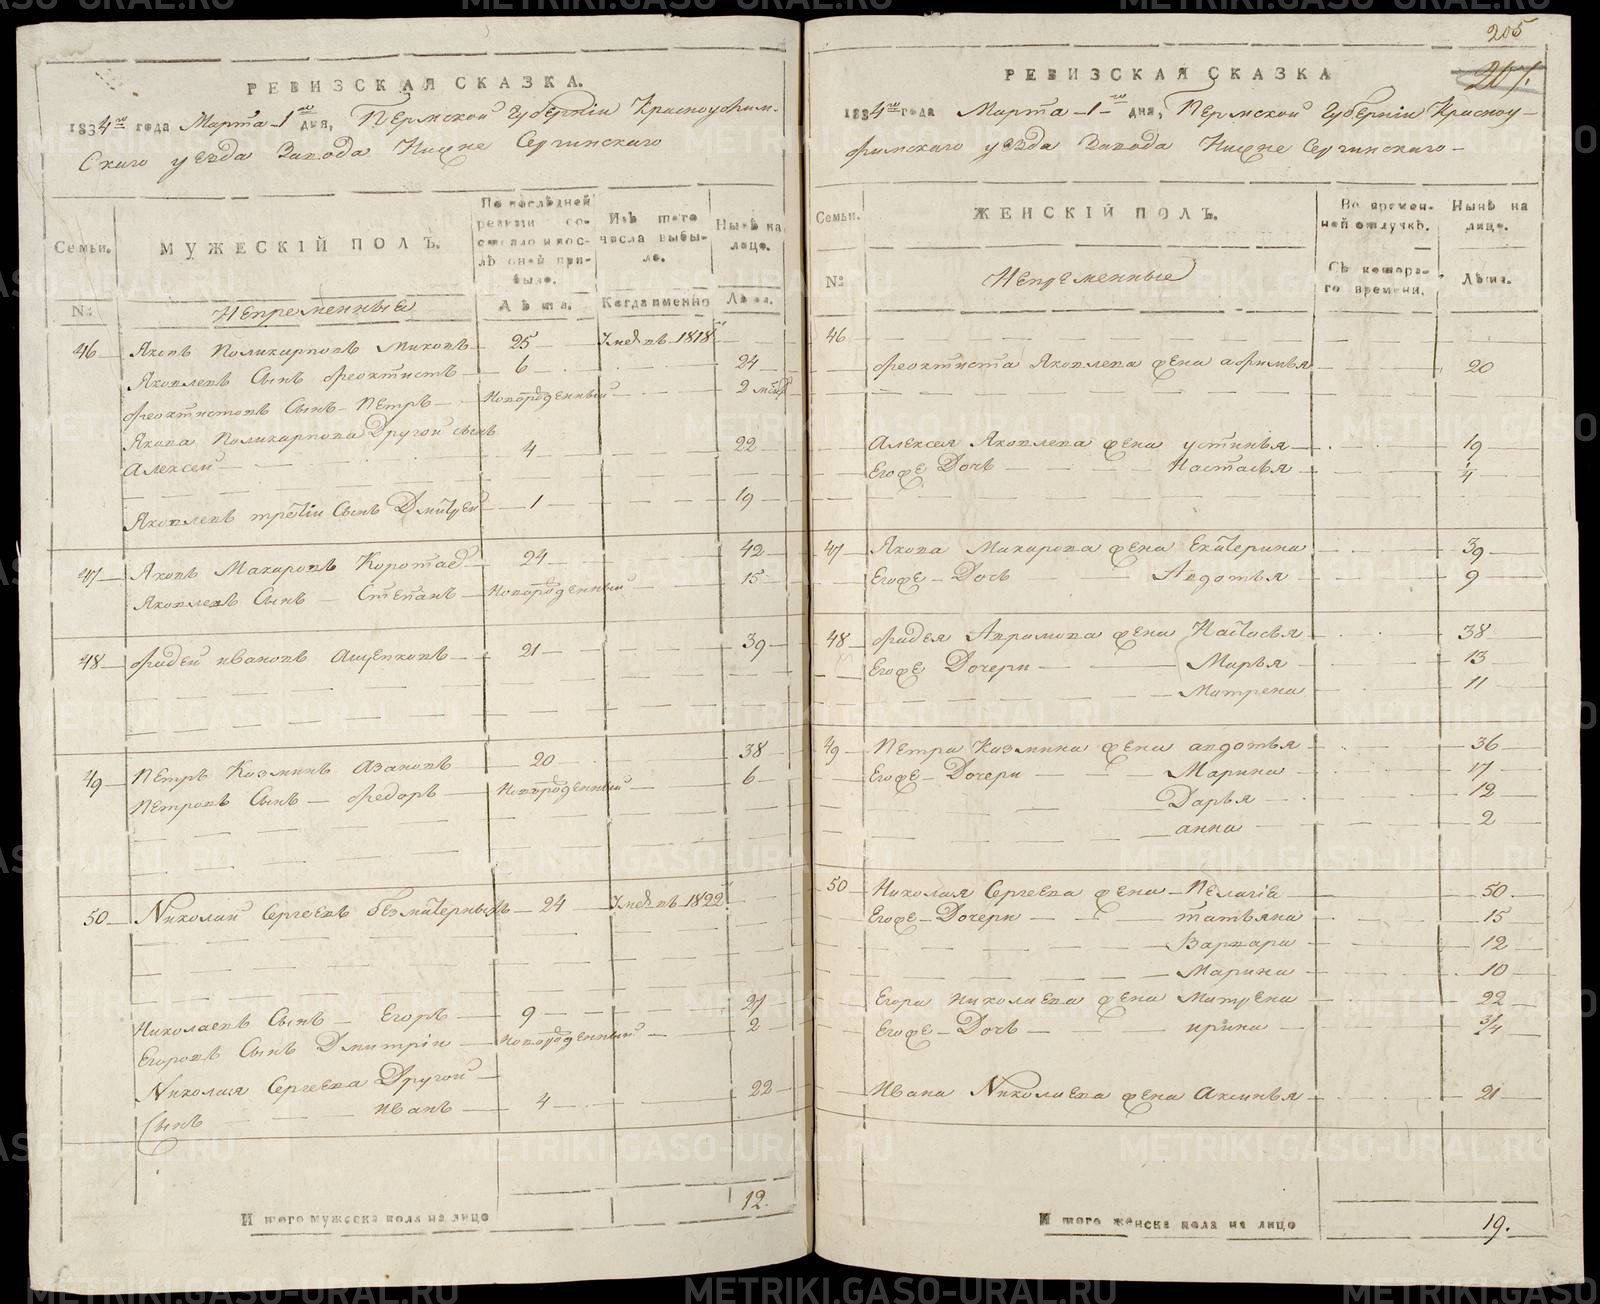 РЕВИЗСКАЯ СКАЗКА.
1834го года Марта 1го дня, Пермской Губерніи Красноуфим-
Скаго уезда Завода Нижне Сергинскаго
Семьи. МУЖЕСКІЙ ПОЛЪ. По последней ревизіи состояло и после оной прибыло. Изъ того числа выбыло. Ныне на лицо.
№ Непременные Лета. Когда именно Лета.
46 Яковъ Поликарповъ 25 1818
Яковлевъ Сынъ Феоктистъ 6 24
Феоктистовъ Сынъ Петръ Новорожденный 2 мес
Якова Поликарпова Другой сынъ
Алексей 4 22
Яковлевъ третій Сынъ Дмитрей 1 19
47 Яковъ Макаровъ 24 42
Яковлевъ Сынъ Степанъ Новорожденный 15
48 Фадей Ивановъ Ощепковъ 21 39
49 Петръ Козминъ Азановъ 20 38
Петровъ Сынъ Федоръ Новорожденный 6
50 Николай Сергеевъ Безматерныхъ 24 1822
Николаевъ Сынъ Егоръ 9 27
Егоровъ Сынъ Дмитрій Новорожденный 2
Николая Сергеева Другой
Сынъ Иванъ 4 22
Итого мужеска пола на лицо 12.
205
РЕВИЗСКАЯ СКАЗКА
1834го года Марта 1го дня, Пермской Губерніи Красноу-
фимскаго уезда Завода Нижне Сергинскаго
Семьи. ЖЕНСКІЙ ПОЛЪ. Во временной отлучке. Ныне на лицо.
№ Непременные Съ котораго времени. Лета.
46
Феоктиста Яковлева жена Афимья 20
Алексея Яковлева жена Устинья 19
Егоже Дочь Настасья 1/4
47 Якова Макарова жена Екатерина 39
Егоже Дочь Авдотья 9
48 Фадея жена Настасья 38
Егоже Дочери Марья 13
Матрена 11
49 Петра Козмина жена авдотья 36
Егоже Дочери Марина 17
Дарья 12
анна 2
50 Николая Сергеева жена Пелагіе 50
Егоже Дочери татьяна 15
Варвара 12
Марина 10
Егора Николаева жена Матрена 22
Егоже Дочь ирина 3/4
Ивана Николаева жена Аксинья 21
Итого женска пола на лицо 19.
METRIKI.GASO-URAL.RU